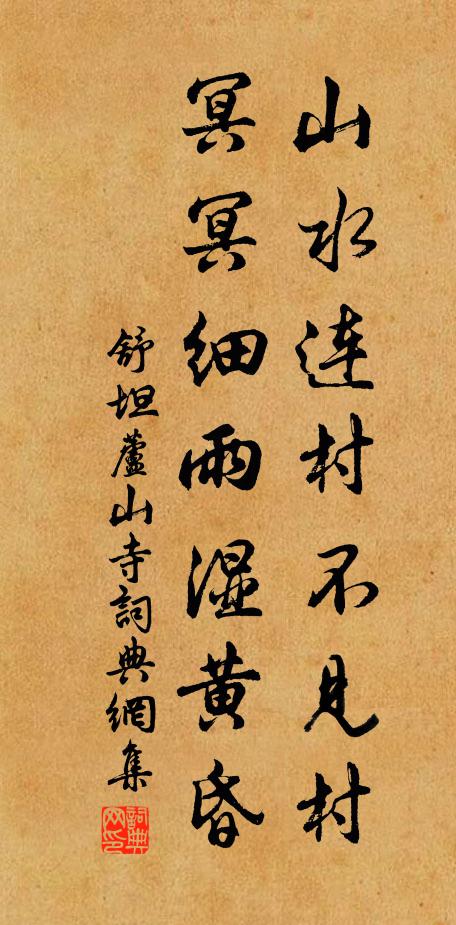 山水连村不见村
冥冥细雨湿黄昏
舒坦蘆山寺詞典網集
詞典网印